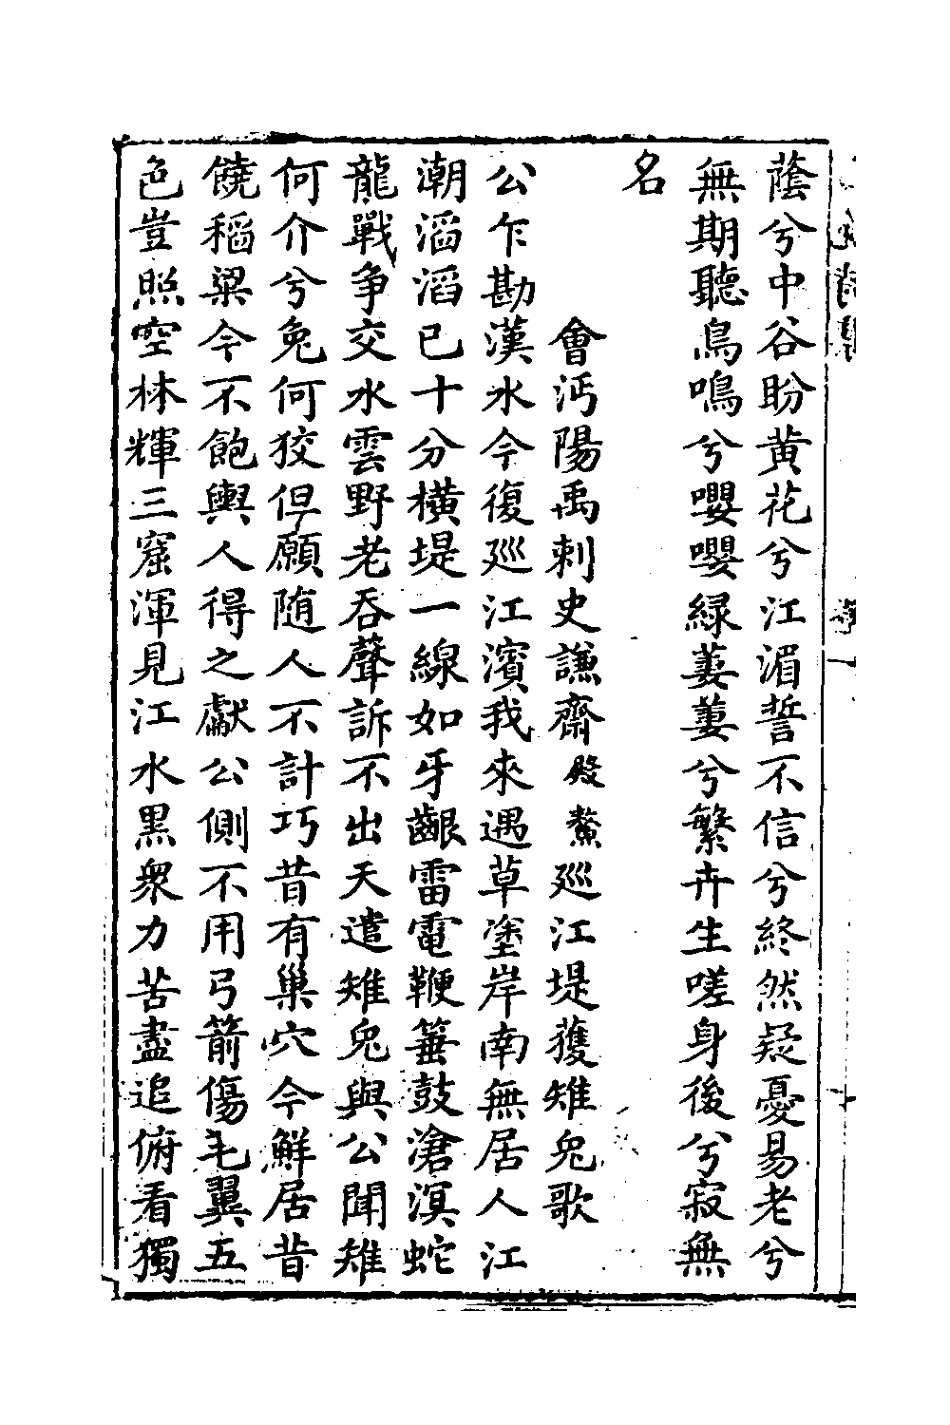 蔭兮中谷盼黄花兮江湄誓不信兮終然疑憂易老兮
無期聽鳥鳴兮嚶嚶緑萋萋兮繁卉生嗟身後兮寂無
名
會沔陽禹刺史謙齋殿鰲巡江堤獲雉兔歌
公乍勘漢水今復巡江濱我來遇草塗岸南無居人江
潮滔滔已十分横堤一線如牙齦雷電鞭箠鼓滄溟蛇
龍戰争交水雲野老吞聲訴不出天遣雉兔與公聞雉
何介兮兔何狡但願随人不計巧昔有巢穴今鮮居昔
饒稻粱今不飽輿人得之獻公側不用弓箭傷毛翼五
色豈照空林輝三窟渾見江水黒衆力苦盡追俯看獨